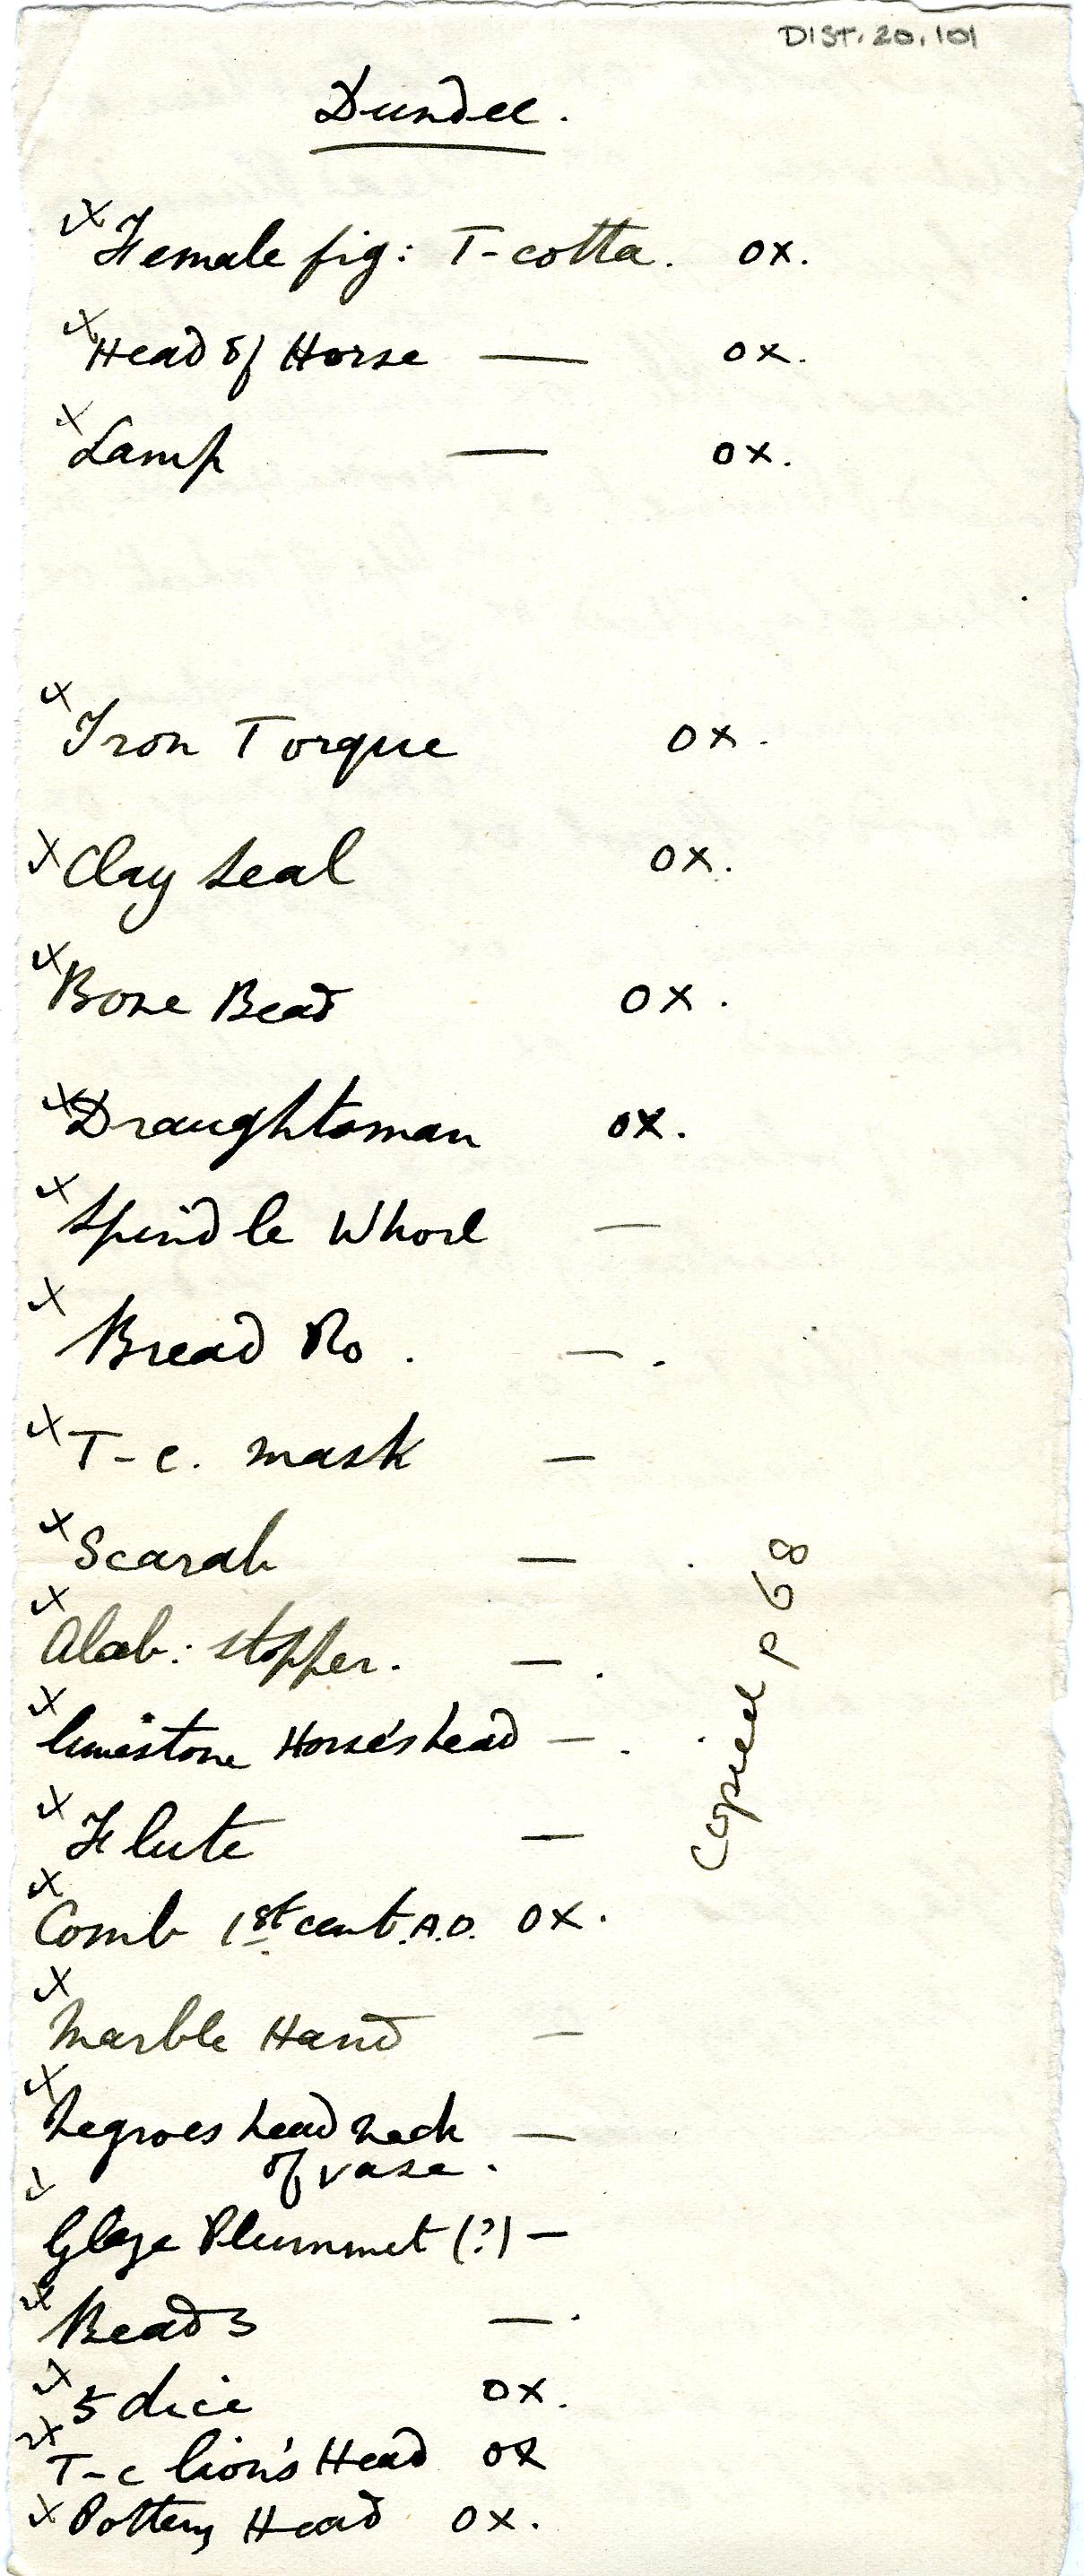 DIST. 20.101
Dundee.
Female fig: T-cotta. OX.
Head of Horse — OX.
Lamp — OX.
Iron Torque OX.
Clay Seal OX.
Bone Bead OX.
Draughtsman OX.
Spindle Whorl —
Bread Ro. —.
T-c. mask —
Scarab —
Alab: stopper. —.
limestone Horse's head —.
Flute —
Comb 1st cent. A.D. OX.
Marble Hand —
Negroes head neck —
of vase.
Glaze Plummet (?) —
Beads —.
5 dice OX.
T-c lion's Head OX
Pottery Head OX.
Copied p 68